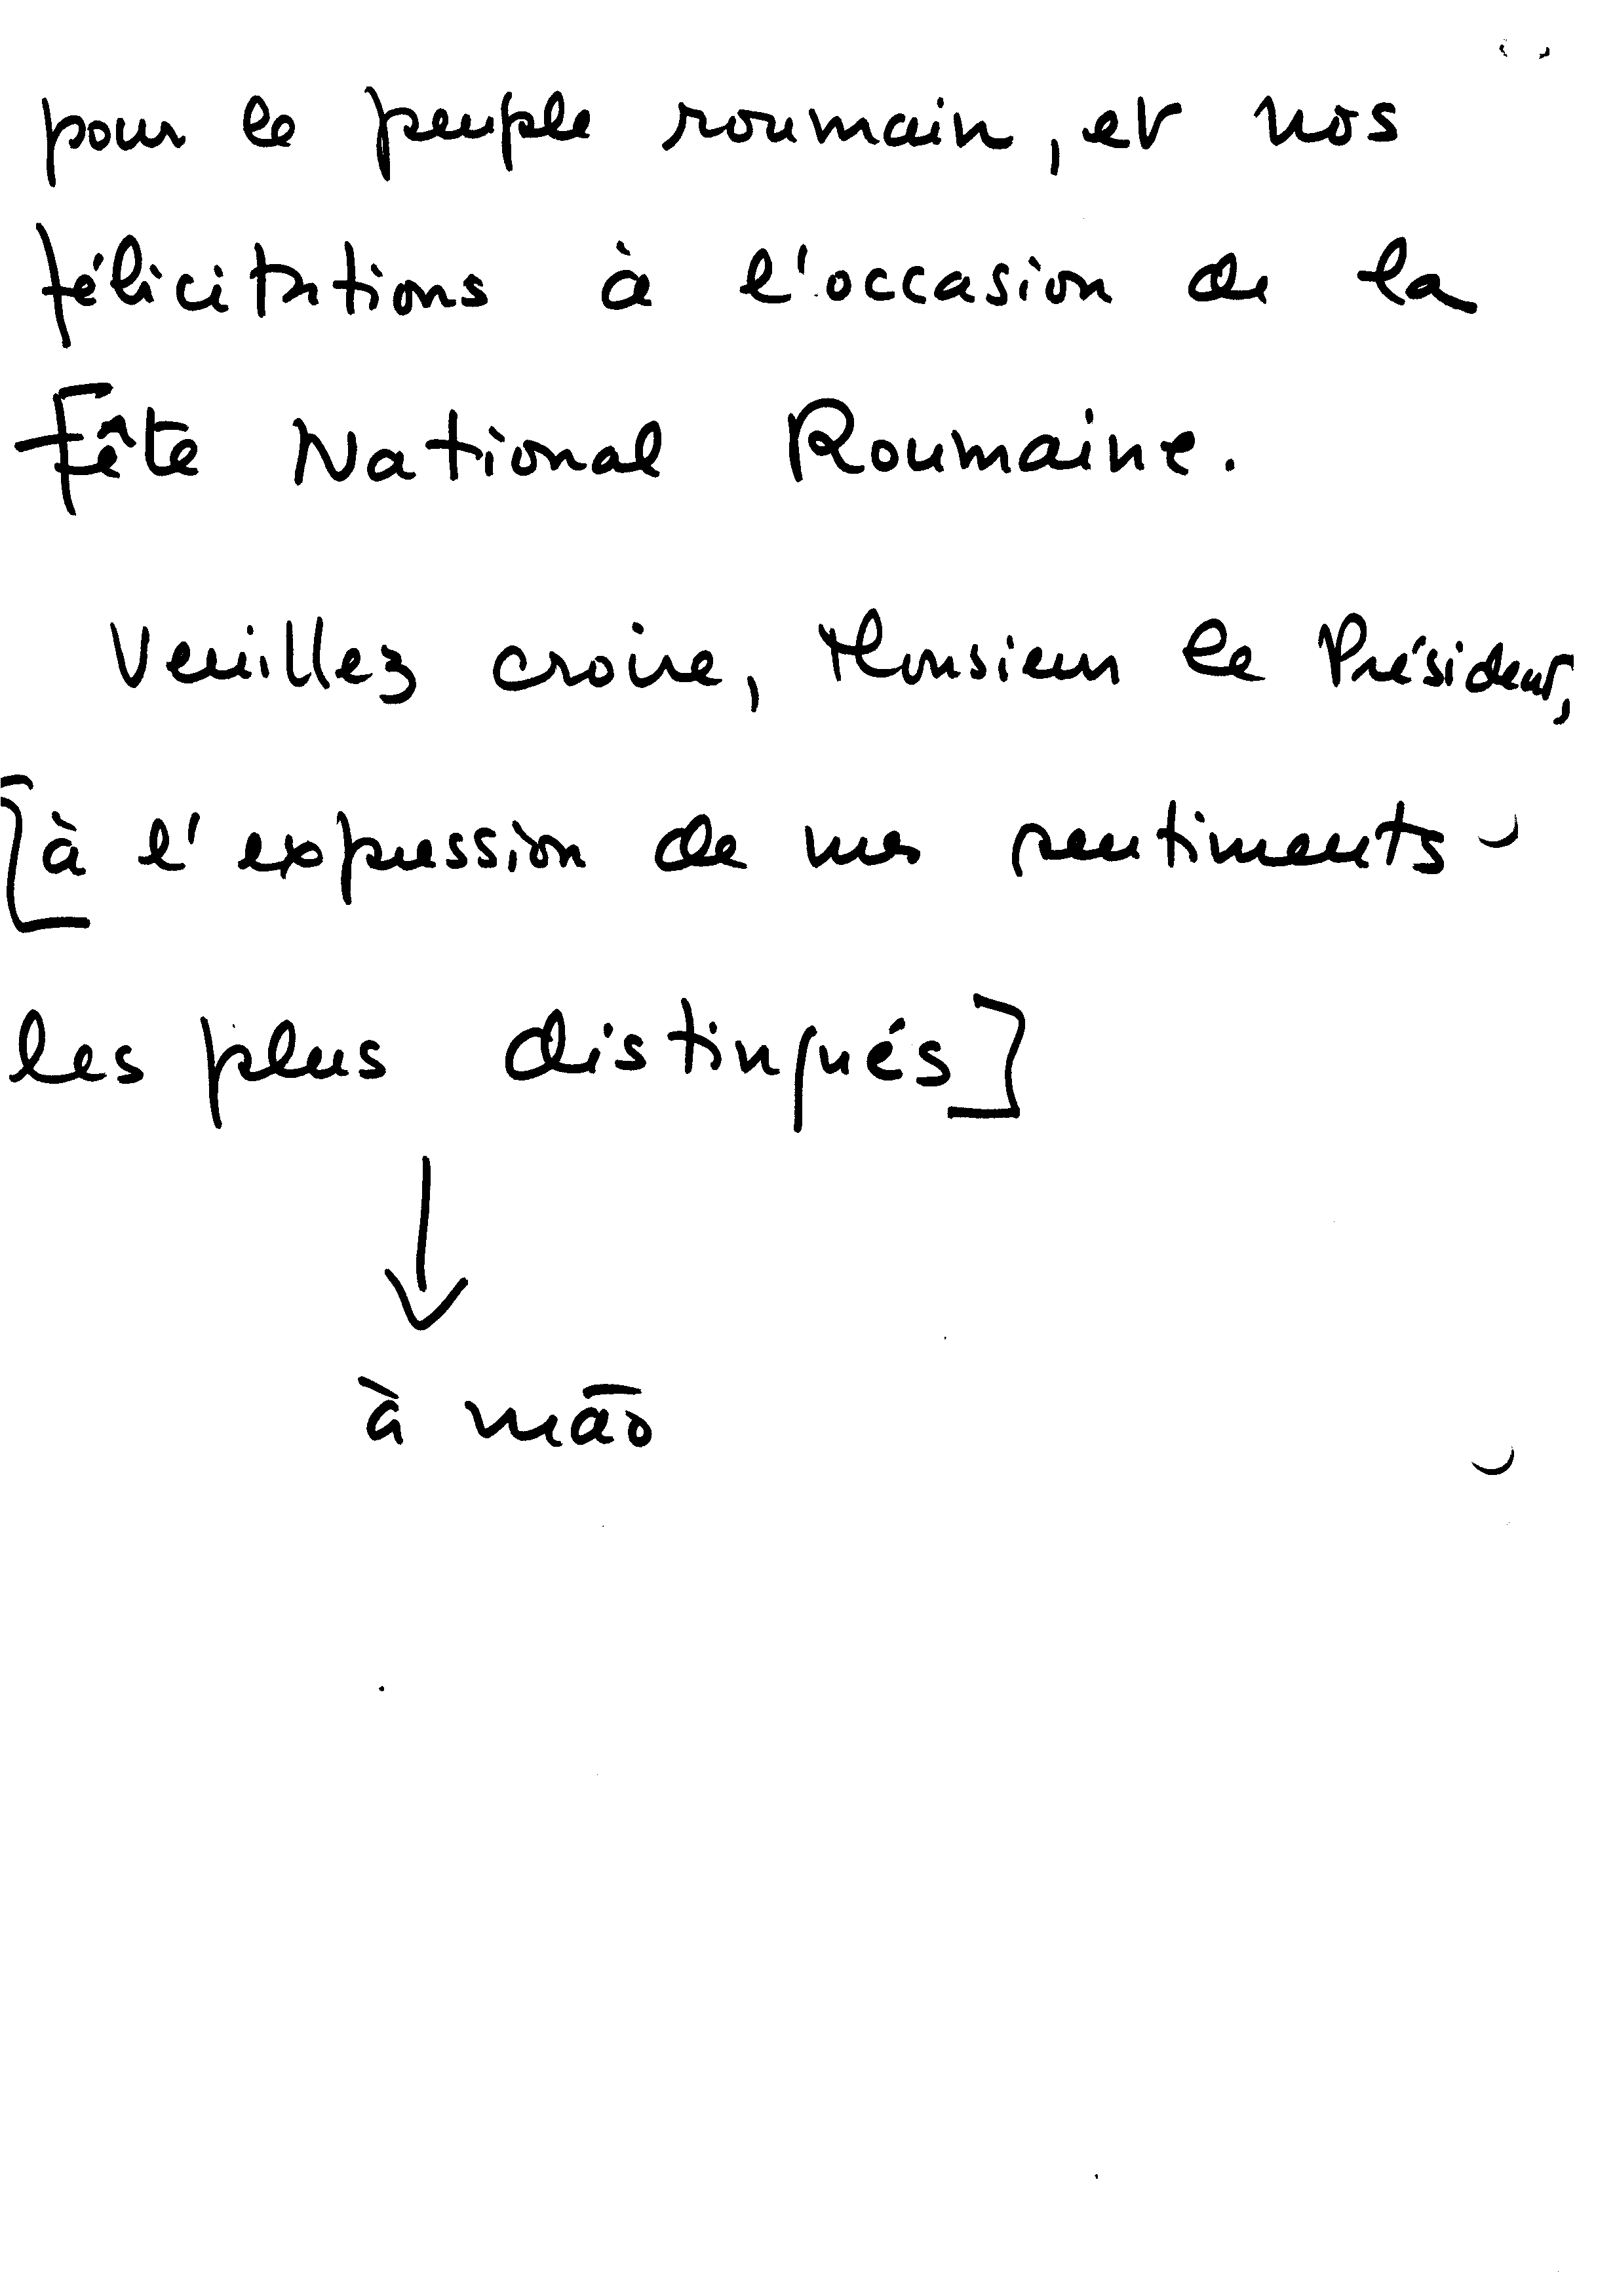 pour le peuple roumain, et nos
félicitations à l'occasion de la
Fête National Roumaine.
Veuillez croire, Monsieur le Président,
[à l'expression de mes sentiments
les plus distingués]
à mão